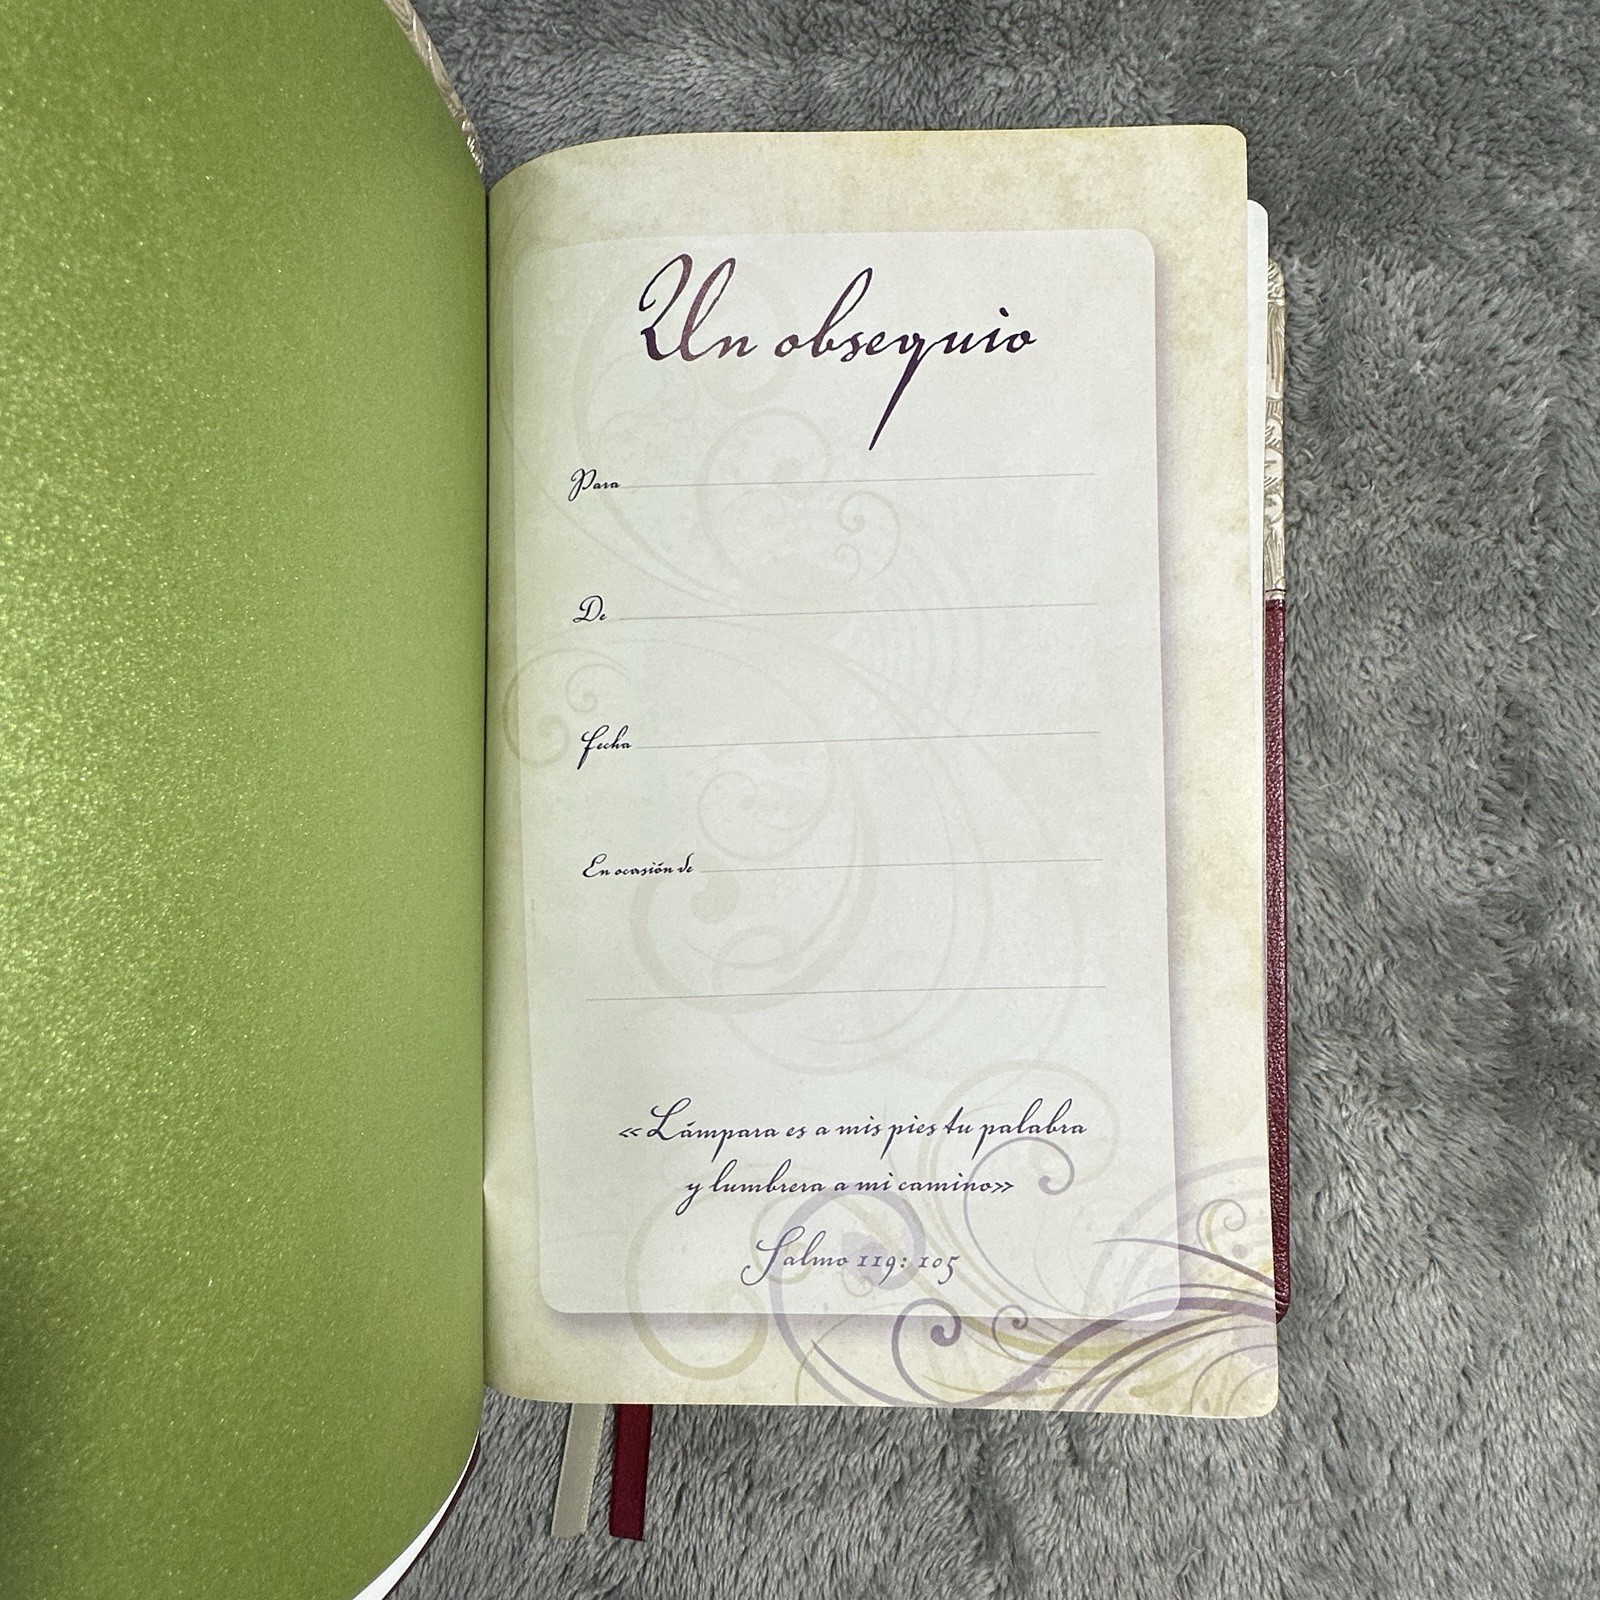 Un obsequio
Para
De
Fecha
En ocasión de
«Lámpara es a mis pies tu palabra
y lumbrera a mi camino»
Salmo 119: 105